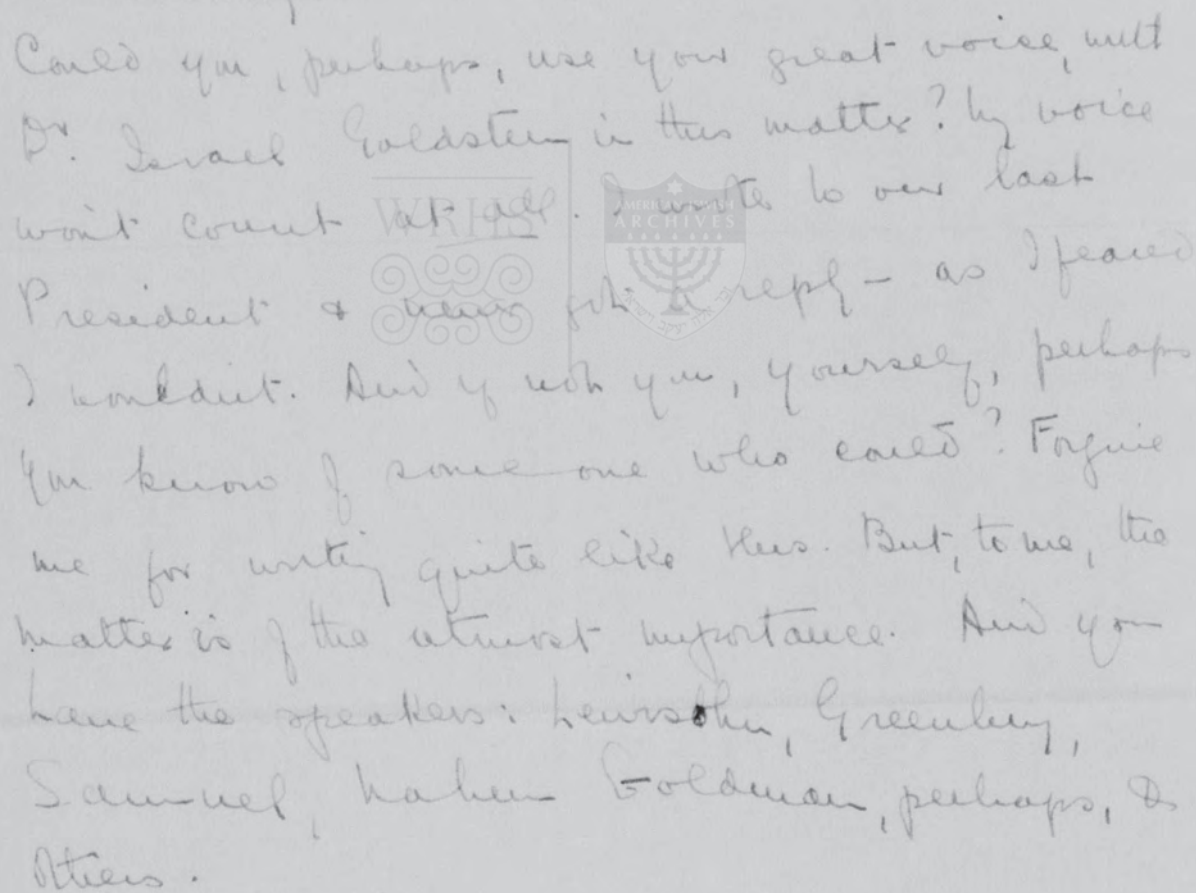 Could you, perhaps, use your great voice, with
Dr. Israel Goldstein in this matter? My voice
won't count at all. I wrote to our last
President & never got a reply – as I feared
I wouldn't. And if not you, yourself, perhaps
you know of some one who could? Forgive
me for writing quite like this. But, to me, the
matter is of the utmost importance. And you
have the speakers: Lewisohn, Greenberg,
Samuel, Nahum Goldman, perhaps, &
others.
WRHS
AMERICAN JEWISH
ARCHIVES